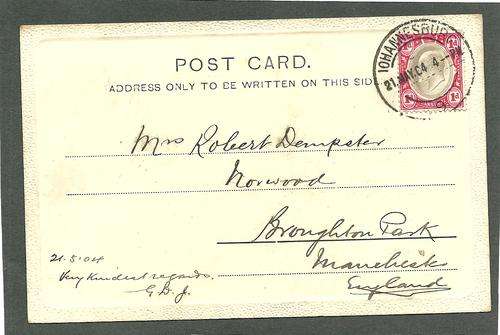 POST CARD.
ADDRESS ONLY TO BE WRITTEN ON THIS SIDE
JOHANNESBURG
21.MAY.04 4-PM
Mrs Robert Dempster
Norwood
Broughton Park
Manchester
England
21.5.04
Very kindest regards.
G.D.J.